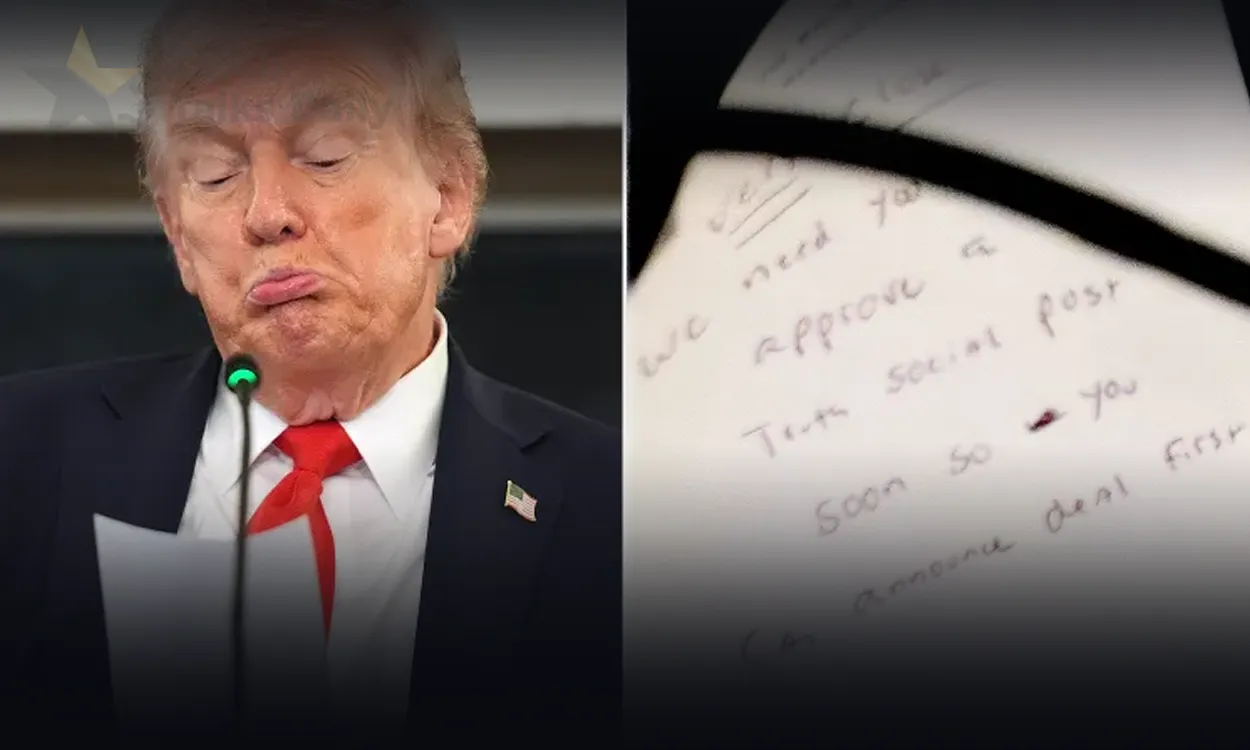 Very close
We need you
approve a
Truth social post
soon so you
can announce deal first